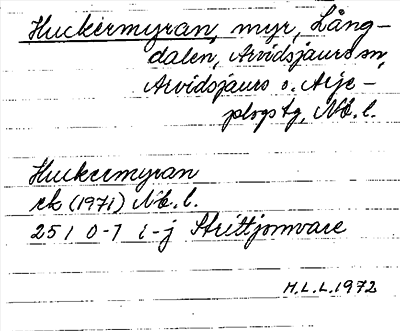 Huckermyran, myr, Lång-
dalen, Arvidsjaurs sn,
Arvidsjaurs o. Arje-
plogs tg, Nb. l.
Huckermyran
ek (1971) Nb. l.
25 I 0-1 i-j Strittjomvare
H.L.L. 1972